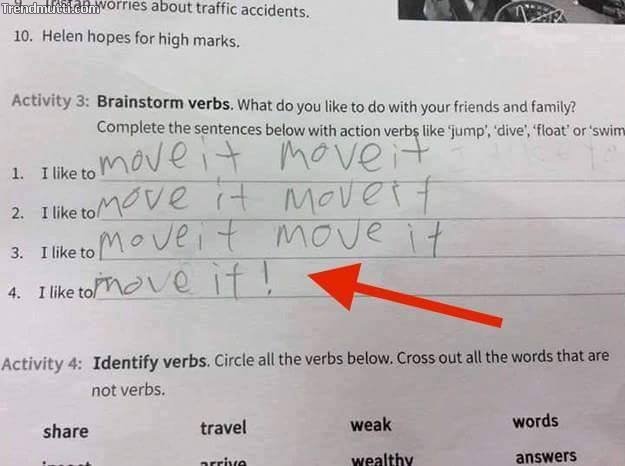 Trendmutti.com
9. worries about traffic accidents.
10. Helen hopes for high marks.
Activity 3: Brainstorm verbs. What do you like to do with your friends and family?
Complete the sentences below with action verbs like ‘jump’, ‘dive’, ‘float’ or ‘swim
1. I like to move it move it
2. I like to move it move it
3. I like to move it move it
4. I like to move it!
Activity 4: Identify verbs. Circle all the verbs below. Cross out all the words that are
not verbs.
share travel weak words
arrive wealthy answers